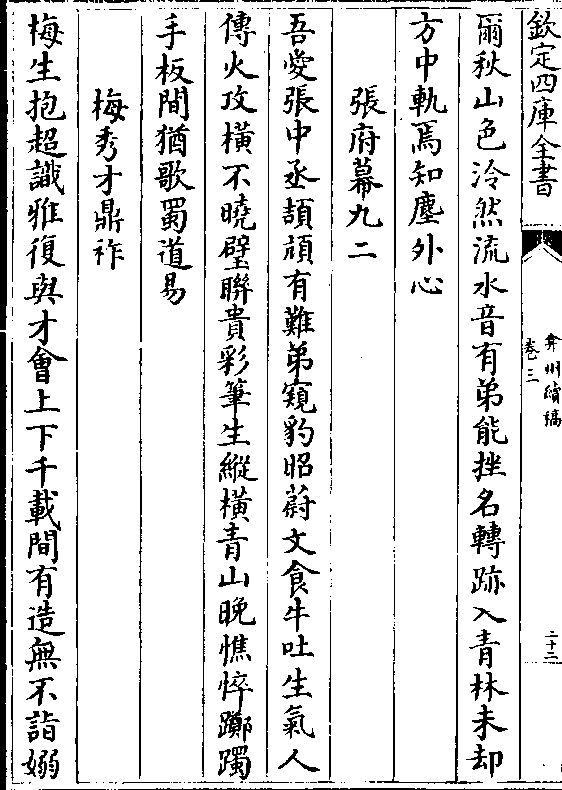 欽定四庫全書
弇州續稿
卷三
二十二
爾秋山色泠然流水音有弟能挫名轉跡入青林未却
方中軌焉知塵外心
張府幕九二
吾愛張中丞頡頏有難弟窺豹昭蔚文食牛吐生氣人
傳火攻橫不曉璧聯貴彩筆生縱橫青山晚憔悴躑躅
手板間猶歌蜀道易
梅秀才鼎祚
梅生抱超識雅復與才會上下千載間有造無不詣嫋